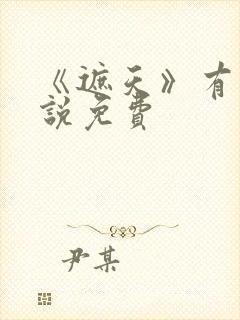 《遮天》有
說免費
尹某